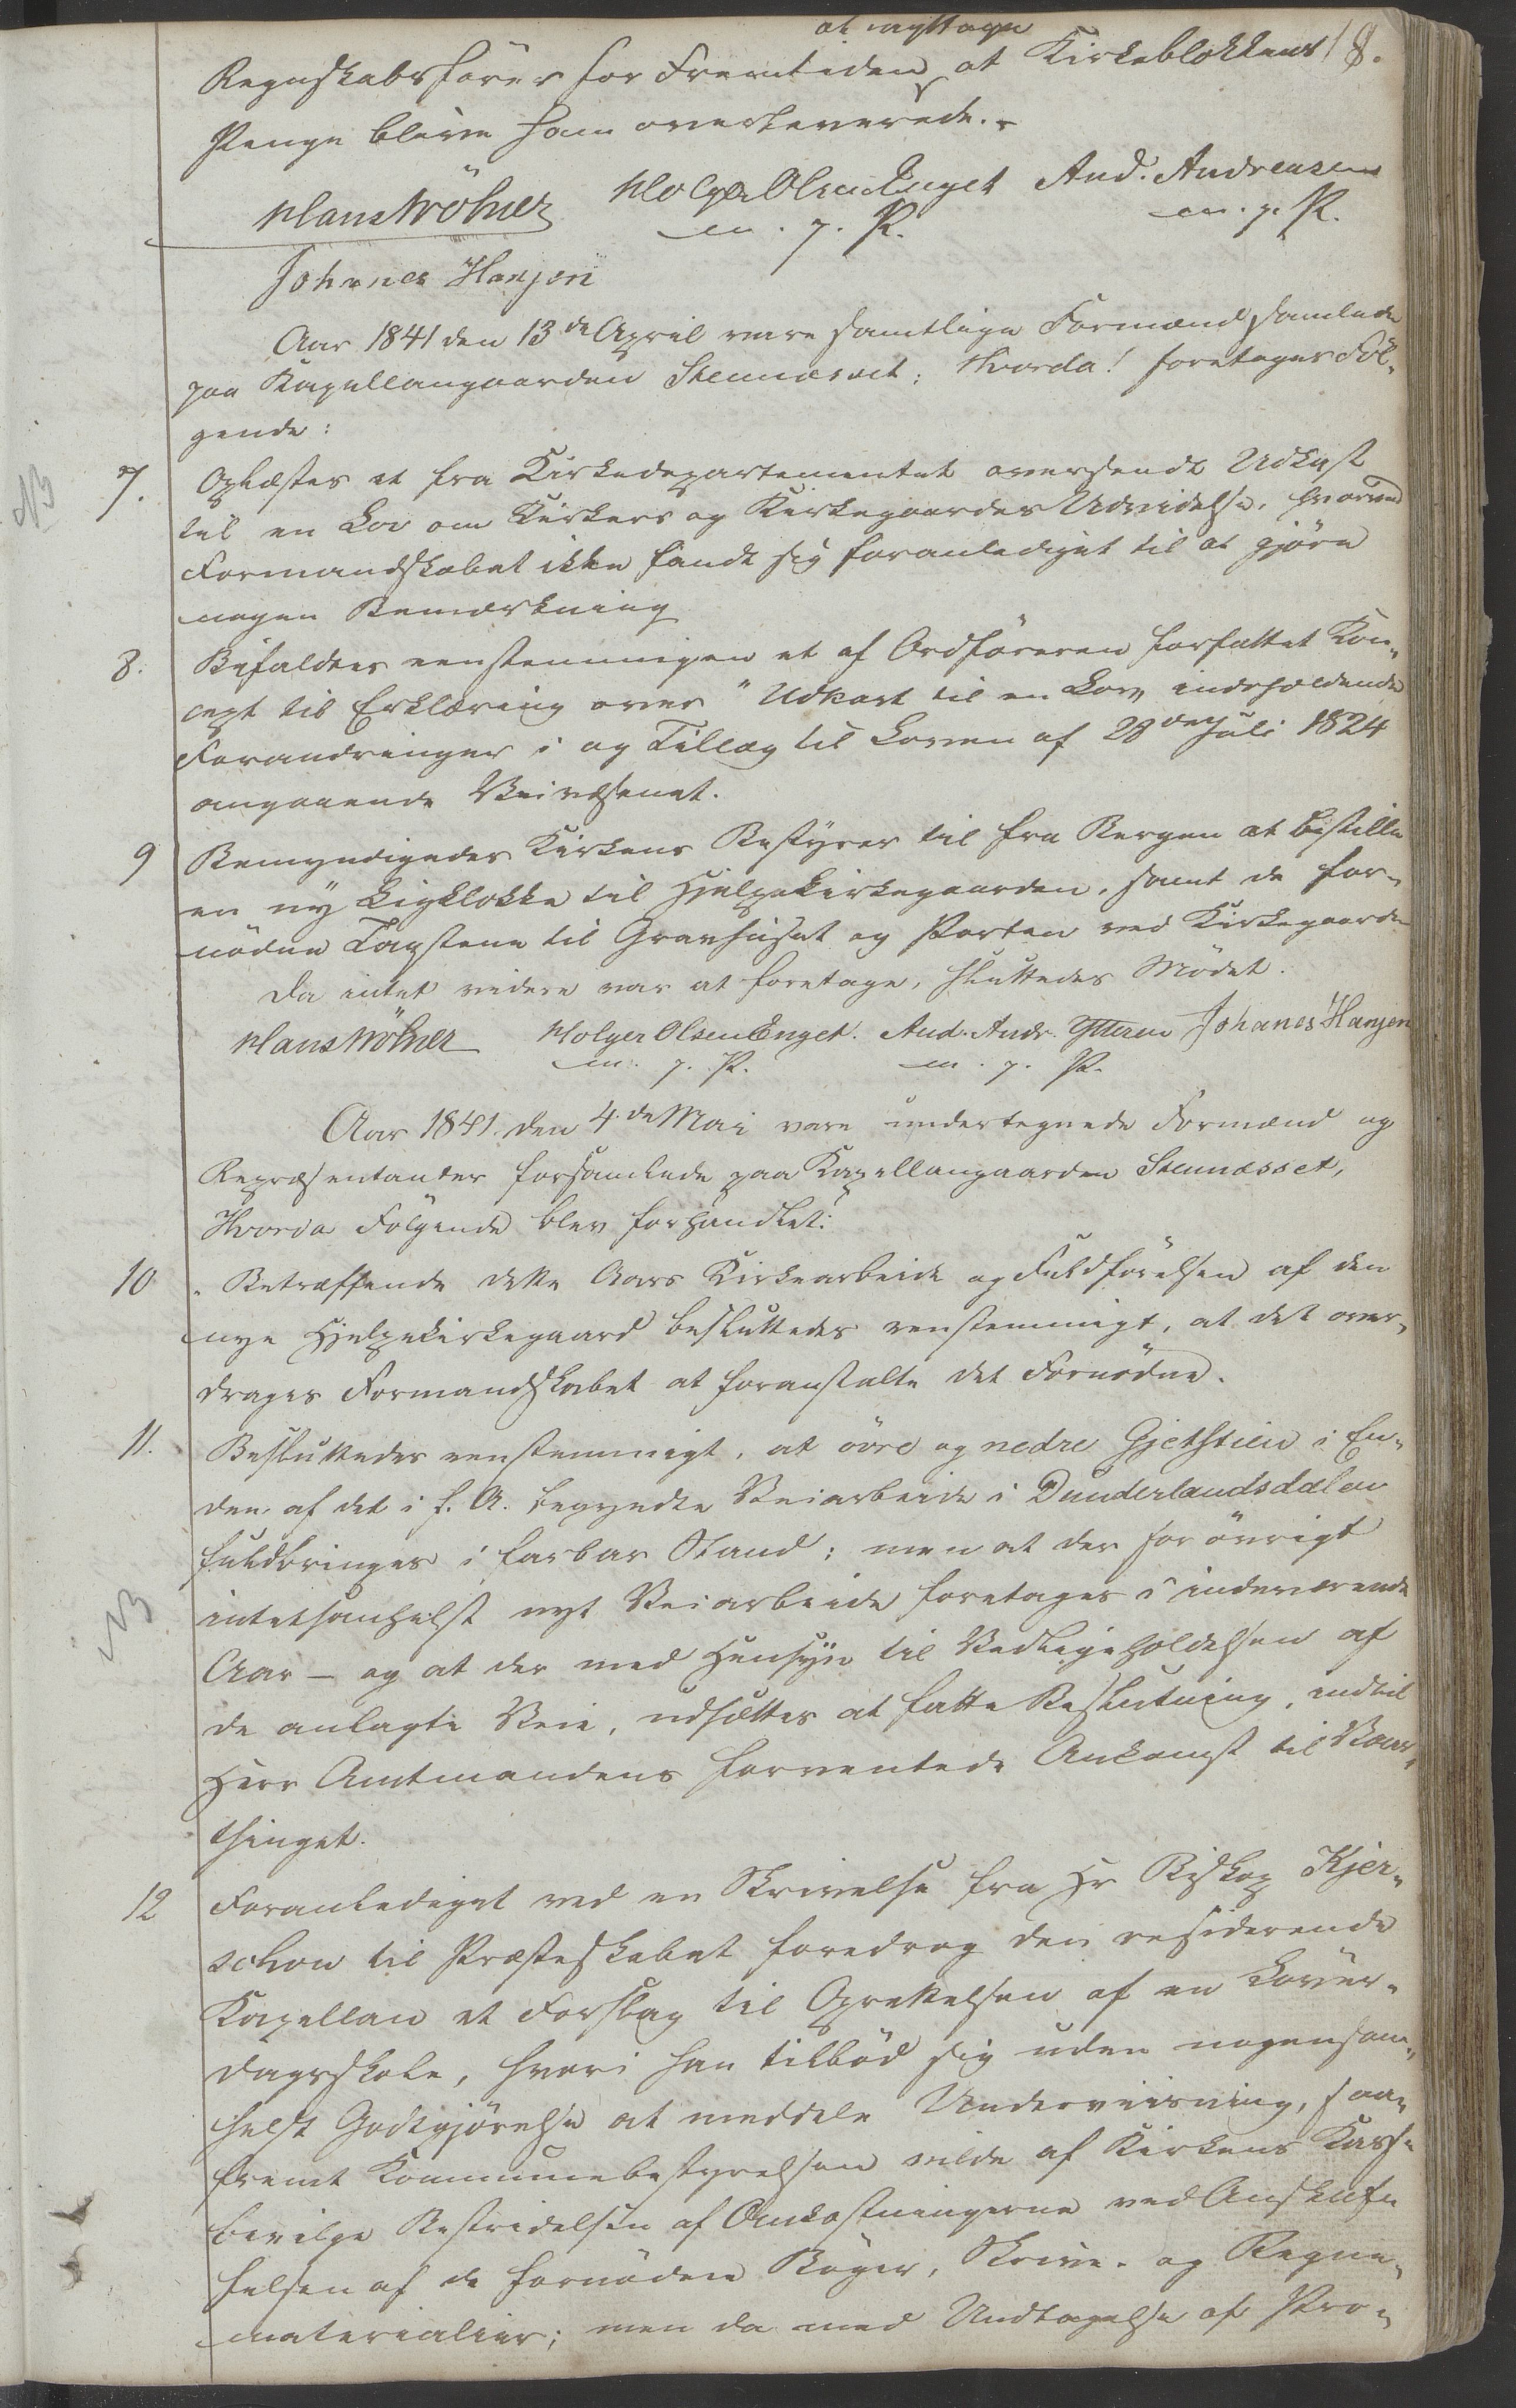 18.
at iagttage
Regnskabsfører for Fremtiden at Kirkeblokkens
Penge blive ham overleverede. -
Hans Wölner Holger Olsen Enget And. Andreasen
m. p. P. m. p. P.
Johanes Hansen
Aar 1841 den 13de April vare samtlige Formænd samlede
paa Kapellangaarden Stennæsset; Hvorda! foretoges Föl-
gende:
7. Oplæstes et fra Kirkedepartementet oversendt Udkast
NB
til en Lov om Kirkers og Kirkegaardes Udvidelse, hvorved
Formandskabet ikke fandt sig foranlediget til at gjöre
nogen Bemærkning
8. Bifaldtes eenstemmigen et af Ordföreren forfattet Kon-
cept til Erklæring over "Udkast til en Lov, indeholdende
Forandringer i og Tillæg til Loven af 28de Juli 1824
angaaende Veivæsenet.
9 Bemyndigedes Kirkens Bestyrer til fra Bergen at bestille
en ny Ligklokke til Hjelpekirkegaarden, samt de for-
nödne Tagstene til Gravhuset og Porten ved Kirkegaarden
Da intet videre var at foretage, sluttedes Mödet.
Hans Wölner Holger Olsen Enget. And. Andr. Ytteren Johanes Hansen
m. p. P. m. p. P.
Aar 1841. den 4de Mai vare undertegnede Formænd og
Repræsentanter forsamlede paa Kapellangaarden Stennæsset,
Hvorda Fölgende blev forhandlet:
10 Betræffende dette Aars Kirkearbeide og Fuldförelsen af den
nye Hjelpekirkegaard besluttedes eenstemmigt, at det over-
drages Formandskabet at foranstalte det Fornödne.
11. Besluttedes eenstemmigt, at övre og nedre Gjetstien i En-
den af det i f. A. begyndte Veiarbeide i Dunderlandsdalen
fuldbringes i farbar Stand; men at der for övrigt
intetsomhelst nyt Veiarbeide foretages i indeværende
NB
Aar – og at der med Hensyn til Vedligeholdelsen af
de anlagte Veie, udsættes at fatte Beslutning, indtil
Herr Amtmandens forventede Ankomst til Vaar-
thinget.
12 Foranlediget ved en Skrivelse fra Hr Biskop Kjer-
schow til Præsteskabet foredrog den residerende
Kapellan et Forslag til Oprettelsen af en Löver-
dagsskole, hvori han tilböd sig uden nogensom-
helst Godtgjörelse at meddele Underviisning, saa-
fremt Kommunebestyrelsen vilde af Kirkens Kasse
bevilge Bestridelsen af Omkostningerne ved Anskaf-
felsen af de fornödne Böger, Skrive- og Regne-
materialier; men da med Undtagelse af Pro-